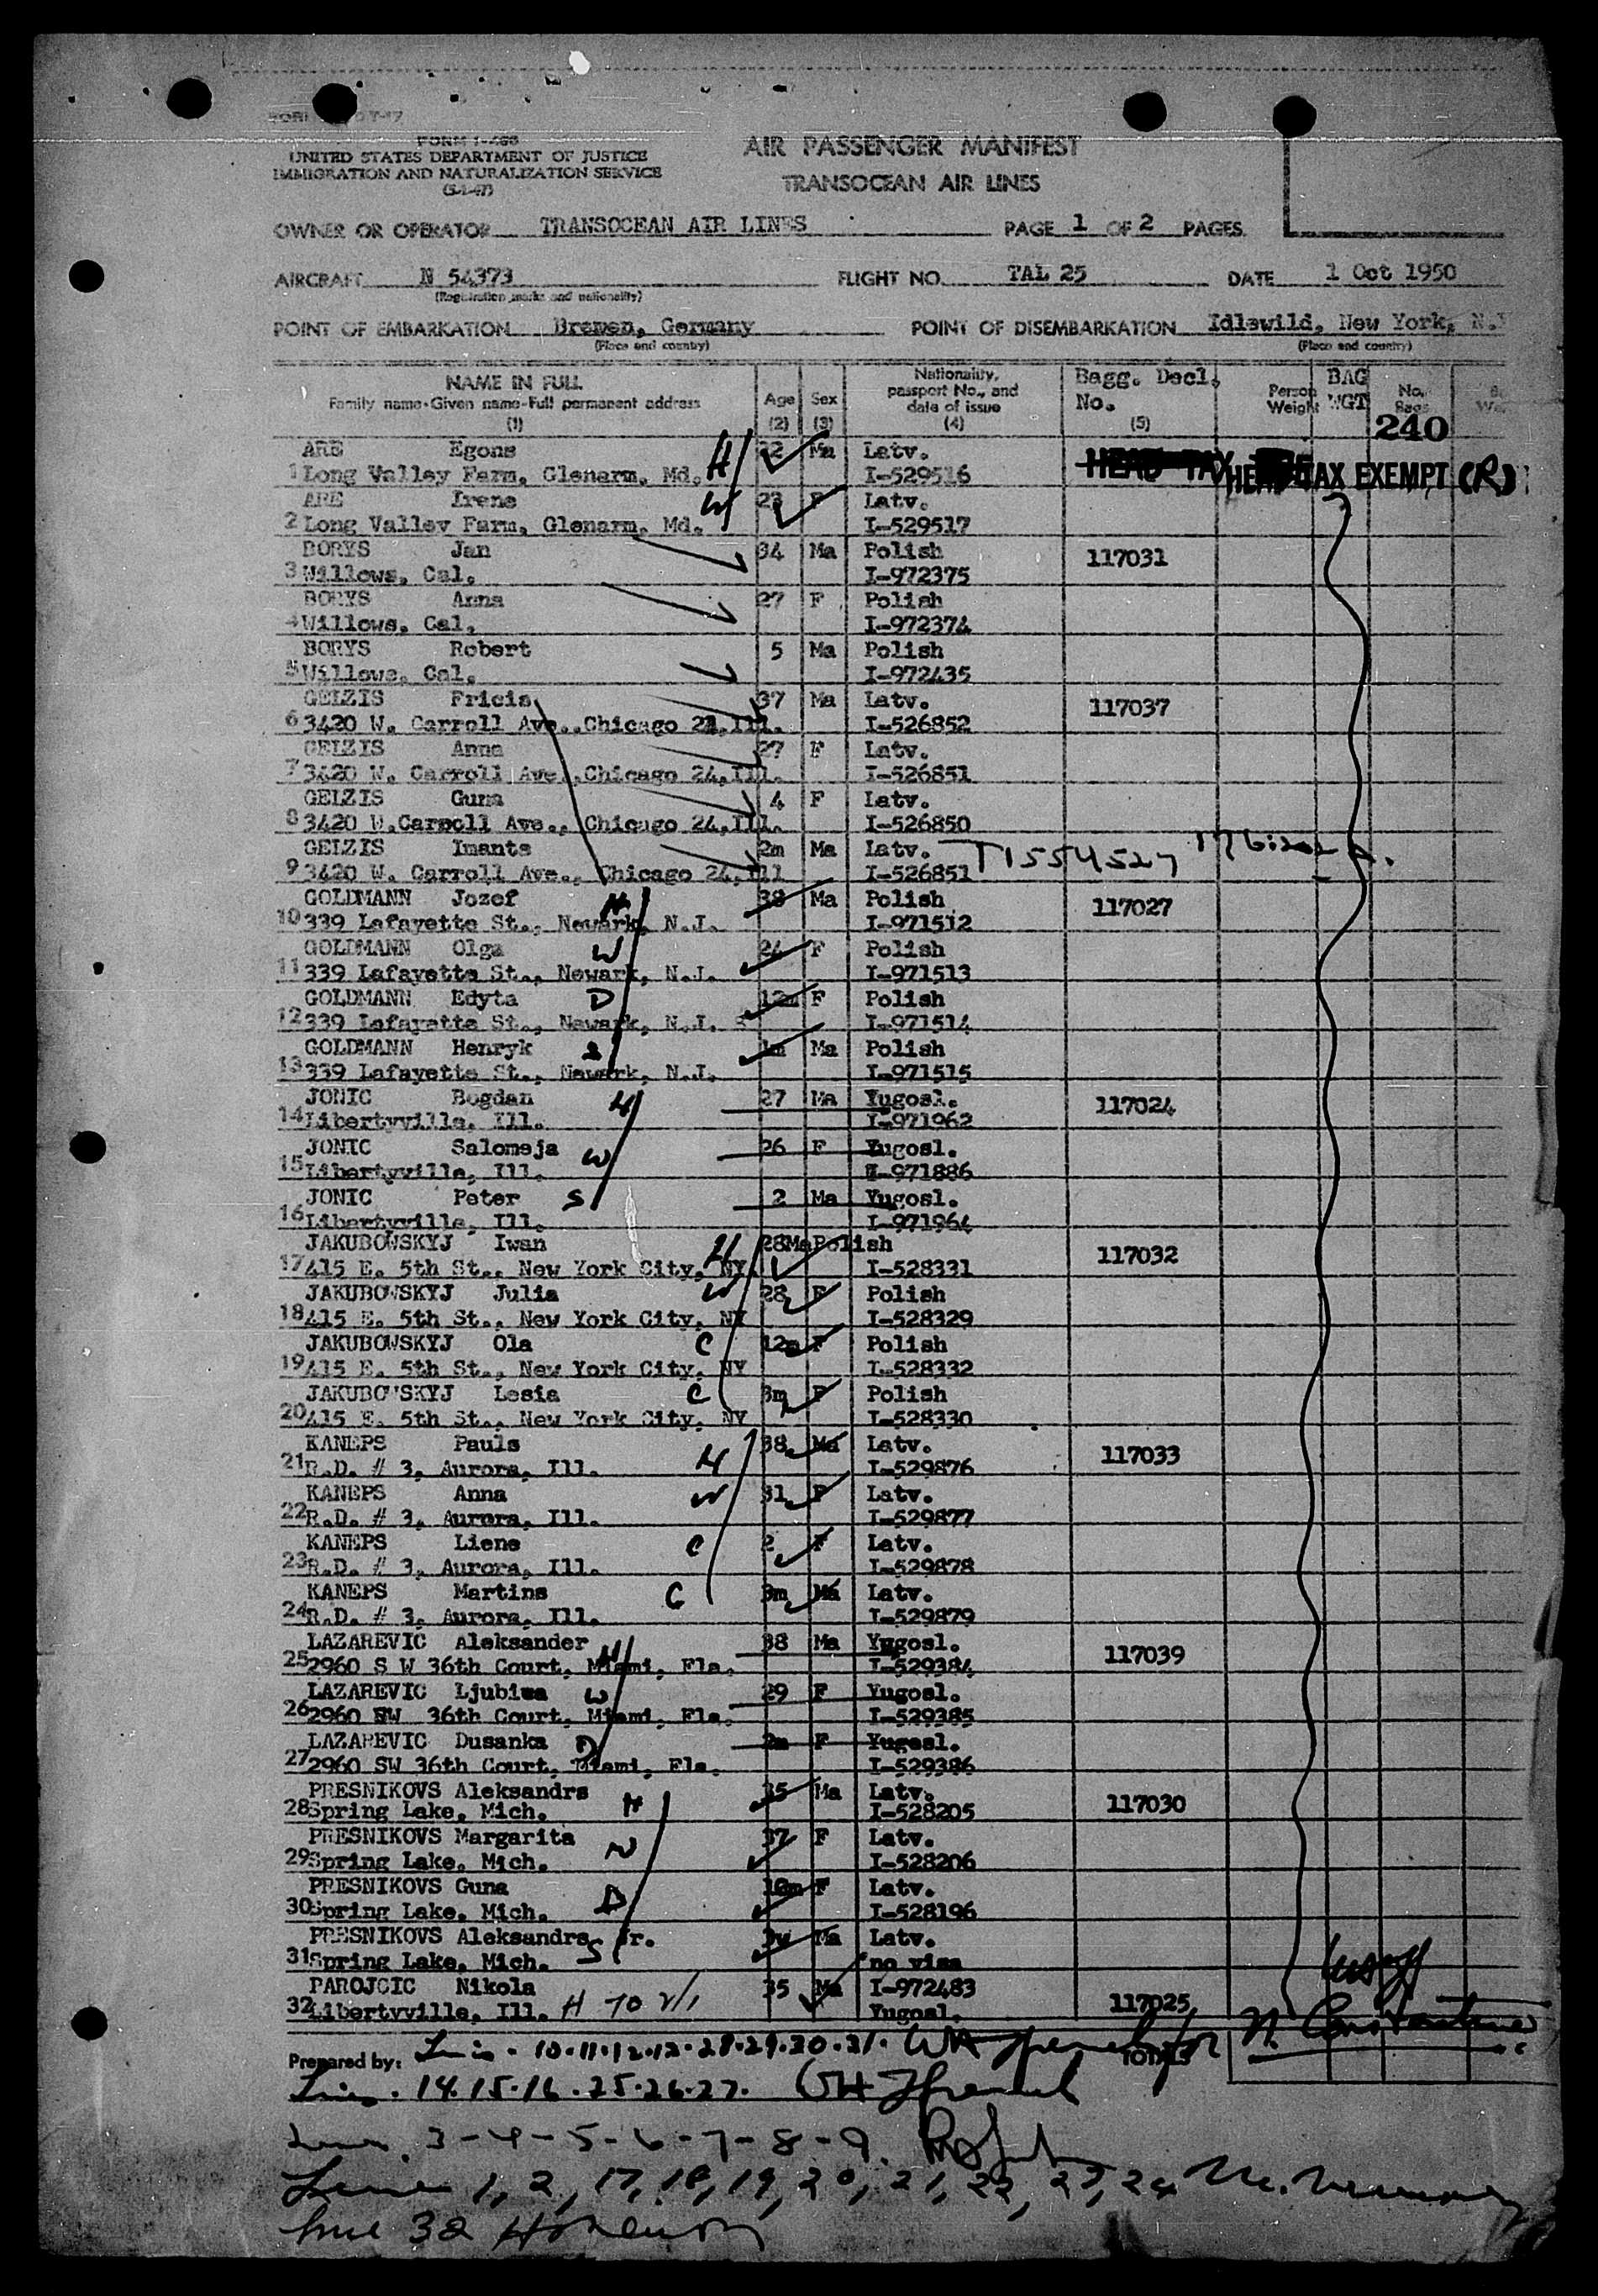 FORM I-466
UNITED STATES DEPARTMENT OF JUSTICE
IMMIGRATION AND NATURALIZATION SERVICE
(5-1-47)
AIR PASSENGER MANIFEST
TRANSOCEAN AIR LINES
OWNER OR OPERATOR TRANSOCEAN AIR LINES PAGE 1 OF 2 PAGES
AIRCRAFT N 54373 FLIGHT NO. TAL 25 DATE 1 Oct 1950
(Registration marks and nationality)
POINT OF EMBARKATION Bremen, Germany POINT OF DISEMBARKATION Idlewild, New York, N.Y
(Place and country) (Place and country)
NAME IN FULL
Family name-Given name-Full permanent address
(1)
Age
(2)
Sex
(3)
Nationality,
passport No., and
date of issue
(4)
Bagg. Decl.
No.
(5)
Person
Weight
BAG
WGT
No.
Bags
240
ARE Egons H 22 Ma Latv. HEAD TAX HEAD TAX EXEMPT (R)
1 Long Valley Farm, Glenarm, Md. I-529516
ARE Irene W 23 F Latv.
2 Long Valley Farm, Glenarm, Md. I-529517
BORYS Jan 34 Ma Polish 117031
3 Willows, Cal. I-972375
BORYS Anna 27 F Polish
4 Willows, Cal. I-972374
BORYS Robert 5 Ma Polish
5 Willows, Cal. I-972435
GELZIS Fricis 37 Ma Latv. 117037
6 3420 W. Carroll Ave., Chicago 24, Ill. I-526852
GELZIS Anna 27 F Latv.
7 3420 W. Carroll Ave., Chicago 24, Ill. I-526851
GELZIS Guna 4 F Latv.
8 3420 W.Carroll Ave., Chicago 24, Ill. I-526850
GELZIS Imants 2m Ma Latv. T1554527
9 3420 W. Carroll Ave., Chicago 24, Ill I-526851
GOLDMANN Jozef H 38 Ma Polish 117027
10 339 Lafayette St., Newark, N.J. I-971512
GOLDMANN Olga W 24 F Polish
11 339 Lafayette St., Newark, N.J. I-971513
GOLDMANN Edyta D 12m F Polish
12 339 Lafayette St., Newark, N.J. I-971514
GOLDMANN Henryk S 1m Ma Polish
13 339 Lafayette St., Newark, N.J. I-971515
JONIC Bogdan H 27 Ma Yugosl. 117024
14 Libertyville, Ill. I-971962
JONIC Salomeja W 26 F Yugosl.
15 Libertyville, Ill. I-971886
JONIC Peter S 2 Ma Yugosl.
16 Libertyville, Ill. I-971964
JAKUBOWSKYJ Iwan H 28 Ma Polish 117032
17 415 E. 5th St., New York City, NY I-528331
JAKUBOWSKYJ Julia W 28 F Polish
18 415 E. 5th St., New York City, NY I-528329
JAKUBOWSKYJ Ola C 12m F Polish
19 415 E. 5th St., New York City, NY I-528332
JAKUBOWSKYJ Lesia C 3m F Polish
20 415 E. 5th St., New York City, NY I-528330
KANEPS Pauls H 38 Ma Latv. 117033
21 R.D. # 3, Aurora, Ill. I-529876
KANEPS Anna W 31 F Latv.
22 R.D. # 3, Aurora, Ill. I-529877
KANEPS Liene C 2 F Latv.
23 R.D. # 3, Aurora, Ill. I-529878
KANEPS Martins C 3m Ma Latv.
24 R.D. # 3, Aurora, Ill. I-529879
LAZAREVIC Aleksander H 38 Ma Yugosl. 117039
25 2960 S W 36th Court, Miami, Fla. I-529384
LAZAREVIC Ljubiwa W 29 F Yugosl.
26 2960 SW 36th Court, Miami, Fla. I-529385
LAZAREVIC Dusanka D 2m F Yugosl.
27 2960 SW 36th Court, Miami, Fla. I-529386
PRESNIKOVS Aleksandrs H 35 Ma Latv. 117030
28 Spring Lake, Mich. I-528205
PRESNIKOVS Margarita W 37 F Latv.
29 Spring Lake, Mich. I-528206
PRESNIKOVS Guna D 10m F Latv.
30 Spring Lake, Mich. I-528196
PRESNIKOVS Aleksandrs Jr. S 3w Ma Latv.
31 Spring Lake, Mich. no visa
PAROJCIC Nikola 35 Ma I-972483 117025
32 Libertyville, Ill. H Yugosl.
Prepared by: Lines 10-11-12-13-28-29-30-31. TOTALS N. Constantine
Lines 14.15.16.25.26.27.
Lines 3-4-5-6-7-8-9.
Lines 1, 2, 17, 18, 19, 20, 21, 22, 23, 24
Line 32